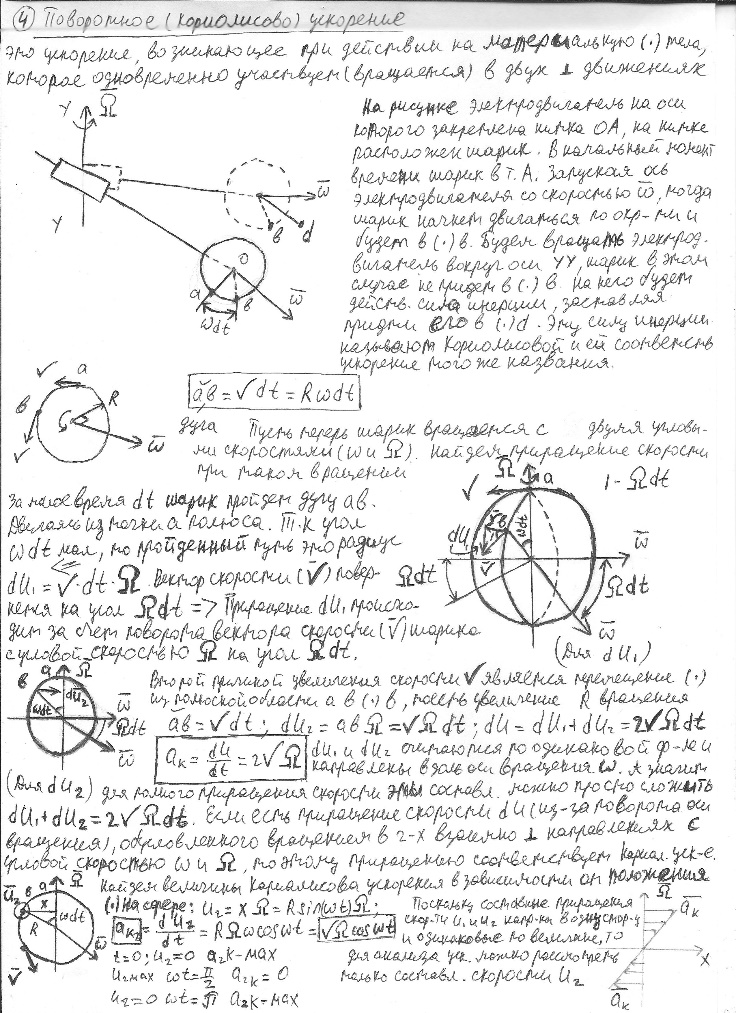 ④ Поворотное (Кориолисово) ускорение
это ускорение, возникающее при действии на материальную (·) тела,
которое одновременно участвует (вращается) в двух ⊥ движениях
На рисунке электродвигатель на оси
которого закреплена нитка OA, на нитке
расположен шарик. В начальный момент
времени шарик в т. А. Запуская ось
электродвигателя со скоростью ω̅, тогда
шарик начнет двигаться по окр-ти и
будет в (·) в. Будем вращать электрод-
вигатель вокруг оси YY, шарик в этом
случае не придет в (·) в. На него будет
действ. сила инерции, заставляя
придти его в (·) d. Эту силу инерции
называют Кориолисовой и ей соответств
ускорение того же название.
Y Ω̅
Y
ω̅
в d
O
a в ω̅
ωdt
V a
в R
V ω̅
ab = Vdt = Rωdt
дуга Пусть теперь шарик вращается с двумя угловы-
ми скоростями (ω и Ω). Найдем приращение скорости
при таком вращении
За малое время dt шарик пройдет дугу ab.
Двигаясь из точки a полюса. Т.к угол
ωdt мал, то пройденный путь это радиус
dU₁ = V · dt · Ω. Вектор скорости (V̅) повер-
нется на угол Ωdt => Приращение dU₁ происхо-
дит за счет поворота вектора скорости (V̅) шарика
с угловой скоростью Ω на угол Ωdt.
Ω̅ a 1 - Ωdt
V
dU₁ V̅ в ωdt ω̅
Ωdt Ωdt
ω̅
(Для dU₁)
в a Ω̅
dU₂
ωdt ω̅
Ωdt
ω̅
(Для dU₂)
Второй причиной увеличения скорости V является перемещение (·)
из полюсной области a в (·) в, то есть увеличение R вращения
ab = Vdt; dU₂ = abΩ = VΩdt; dU = dU₁ + dU₂ = 2VΩdt
aк = dU/dt = 2VΩ
dU₁ и dU₂ считаются по одинаковой ф-ле и
направлены вдоль оси вращения ω. А значит
для полного приращения скорости эти составл. можно просто сложить
dU₁ + dU₂ = 2VΩdt. Если есть приращение скорости dU (из-за поворота оси
вращения), обусловленного вращением в 2-х взаимно ⊥ направлениях с
угловой скоростью ω и Ω, то этому приращению соответствует Кориол. уск-е.
Найдем величины Кориолисова ускорения в зависимости от положения
(·) на сфере: U₂ = xΩ = R sin(ωt)Ω;
aк₂ = dU₂/dt = RΩω cos ωt = VΩ cos ωt
t=0; U₂=0 a₂к - max
U₂max ωt = π/2 a₂к = 0
U₂ = 0 ωt = π a₂к - max
U̅₂ в a Ω̅
x
R ωdt
V̅ ω̅
Поскольку составные приращения
скор-ти U₁ и U₂ напр-ны в одну стор-у
и одинаковые по величине, то
для анализа уск. можно рассмотреть
только составл. скорости U₂
Ω̅
a̅к
x
a̅к